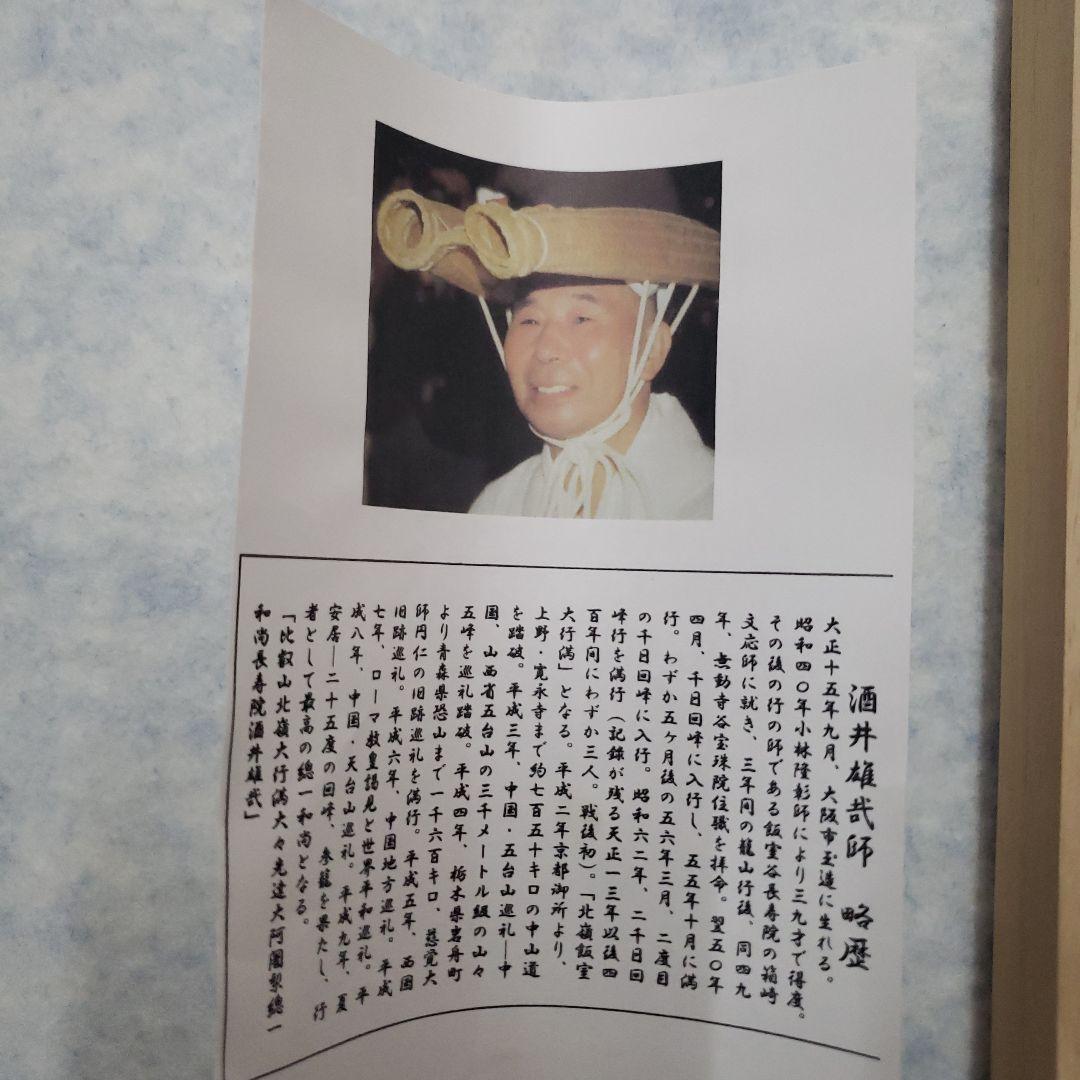 酒井雄哉師　略歴
大正十五年九月、大阪市玉造に生れる。
昭和四〇年小林隆彰師により三九才で得度。
その後の行の師である飯室谷長寿院の箱崎
文応師に就き、三年間の籠山行後、同四九
年、無動寺谷宝珠院住職を拝命。翌五〇年
四月、千日回峰に入行し、五五年十月に満
行。わずか五ヶ月後の五六年三月、二度目
の千日回峰に入行。昭和六二年、二千日回
峰行を満行（記録が残る天正一三年以後四
百年間にわずか三人。戦後初）。「北嶺飯室
大行満」となる。平成二年京都御所より、
上野・寛永寺まで約七百五十キロの中山道
を踏破。平成三年、中国・五台山巡礼―中
国、山西省五台山の三千メートル級の山々
五峰を巡礼踏破。平成四年、栃木県岩舟町
より青森県恐山まで一千六百キロ、慈覚大
師円仁の旧跡巡礼を満行。平成五年、西国
旧跡巡礼。平成六年、中国地方巡礼。平成
七年、ローマ教皇謁見と世界平和巡礼。平
成八年、中国・天台山巡礼。平成九年、夏
安居―二十五度の回峰、参籠を果たし、行
者として最高の總一和尚となる。
「比叡山北嶺大行満大々先達大阿闍梨總一
和尚長寿院酒井雄哉」